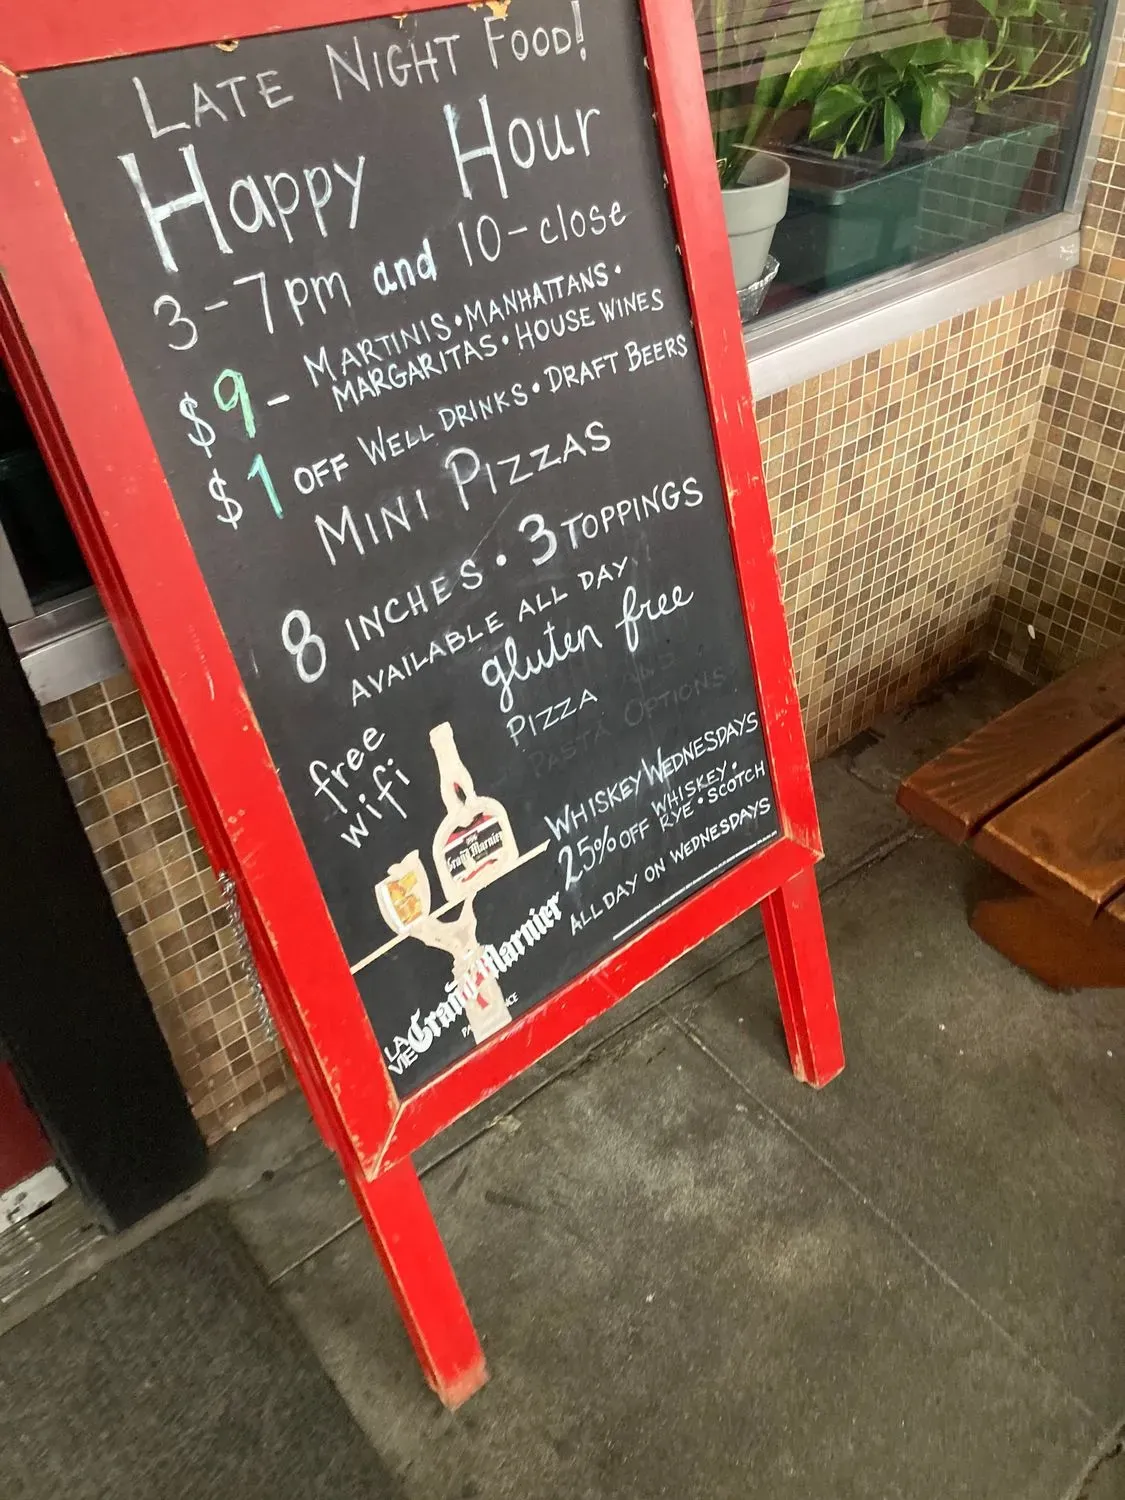 LATE NIGHT FOOD!
Happy Hour
3-7pm and 10-close
$9- MARTINIS • MANHATTANS •
MARGARITAS • HOUSE WINES
$1 OFF WELL DRINKS • DRAFT BEERS
MINI PIZZAS
8 INCHES • 3 TOPPINGS
AVAILABLE ALL DAY
gluten free
PIZZA AND
PASTA OPTIONS
free
wifi
WHISKEY WEDNESDAYS
25% OFF WHISKEY •
RYE • SCOTCH
ALL DAY ON WEDNESDAYS
Grand Marnier
LA
VIE Grand Marnier